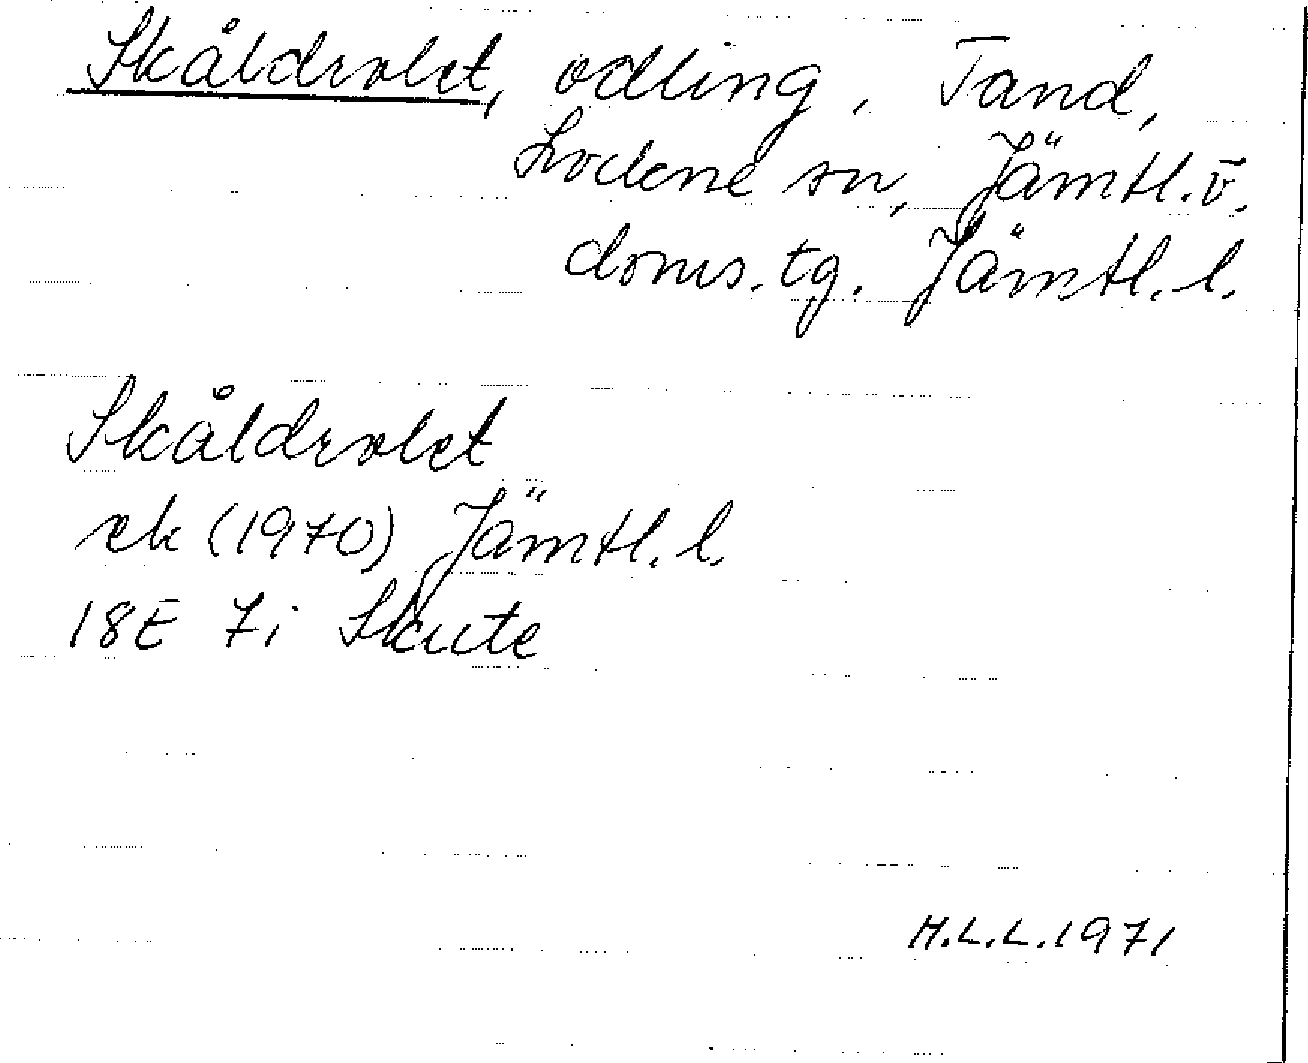 Skåldrolet, odling, Tand,
Lockne sn, Jämtl. v.
doms. tg. Jämtl. l.
Skåldrolet
ek (1970) Jämtl. l.
18E 7i Skute
H.L.L. 1971